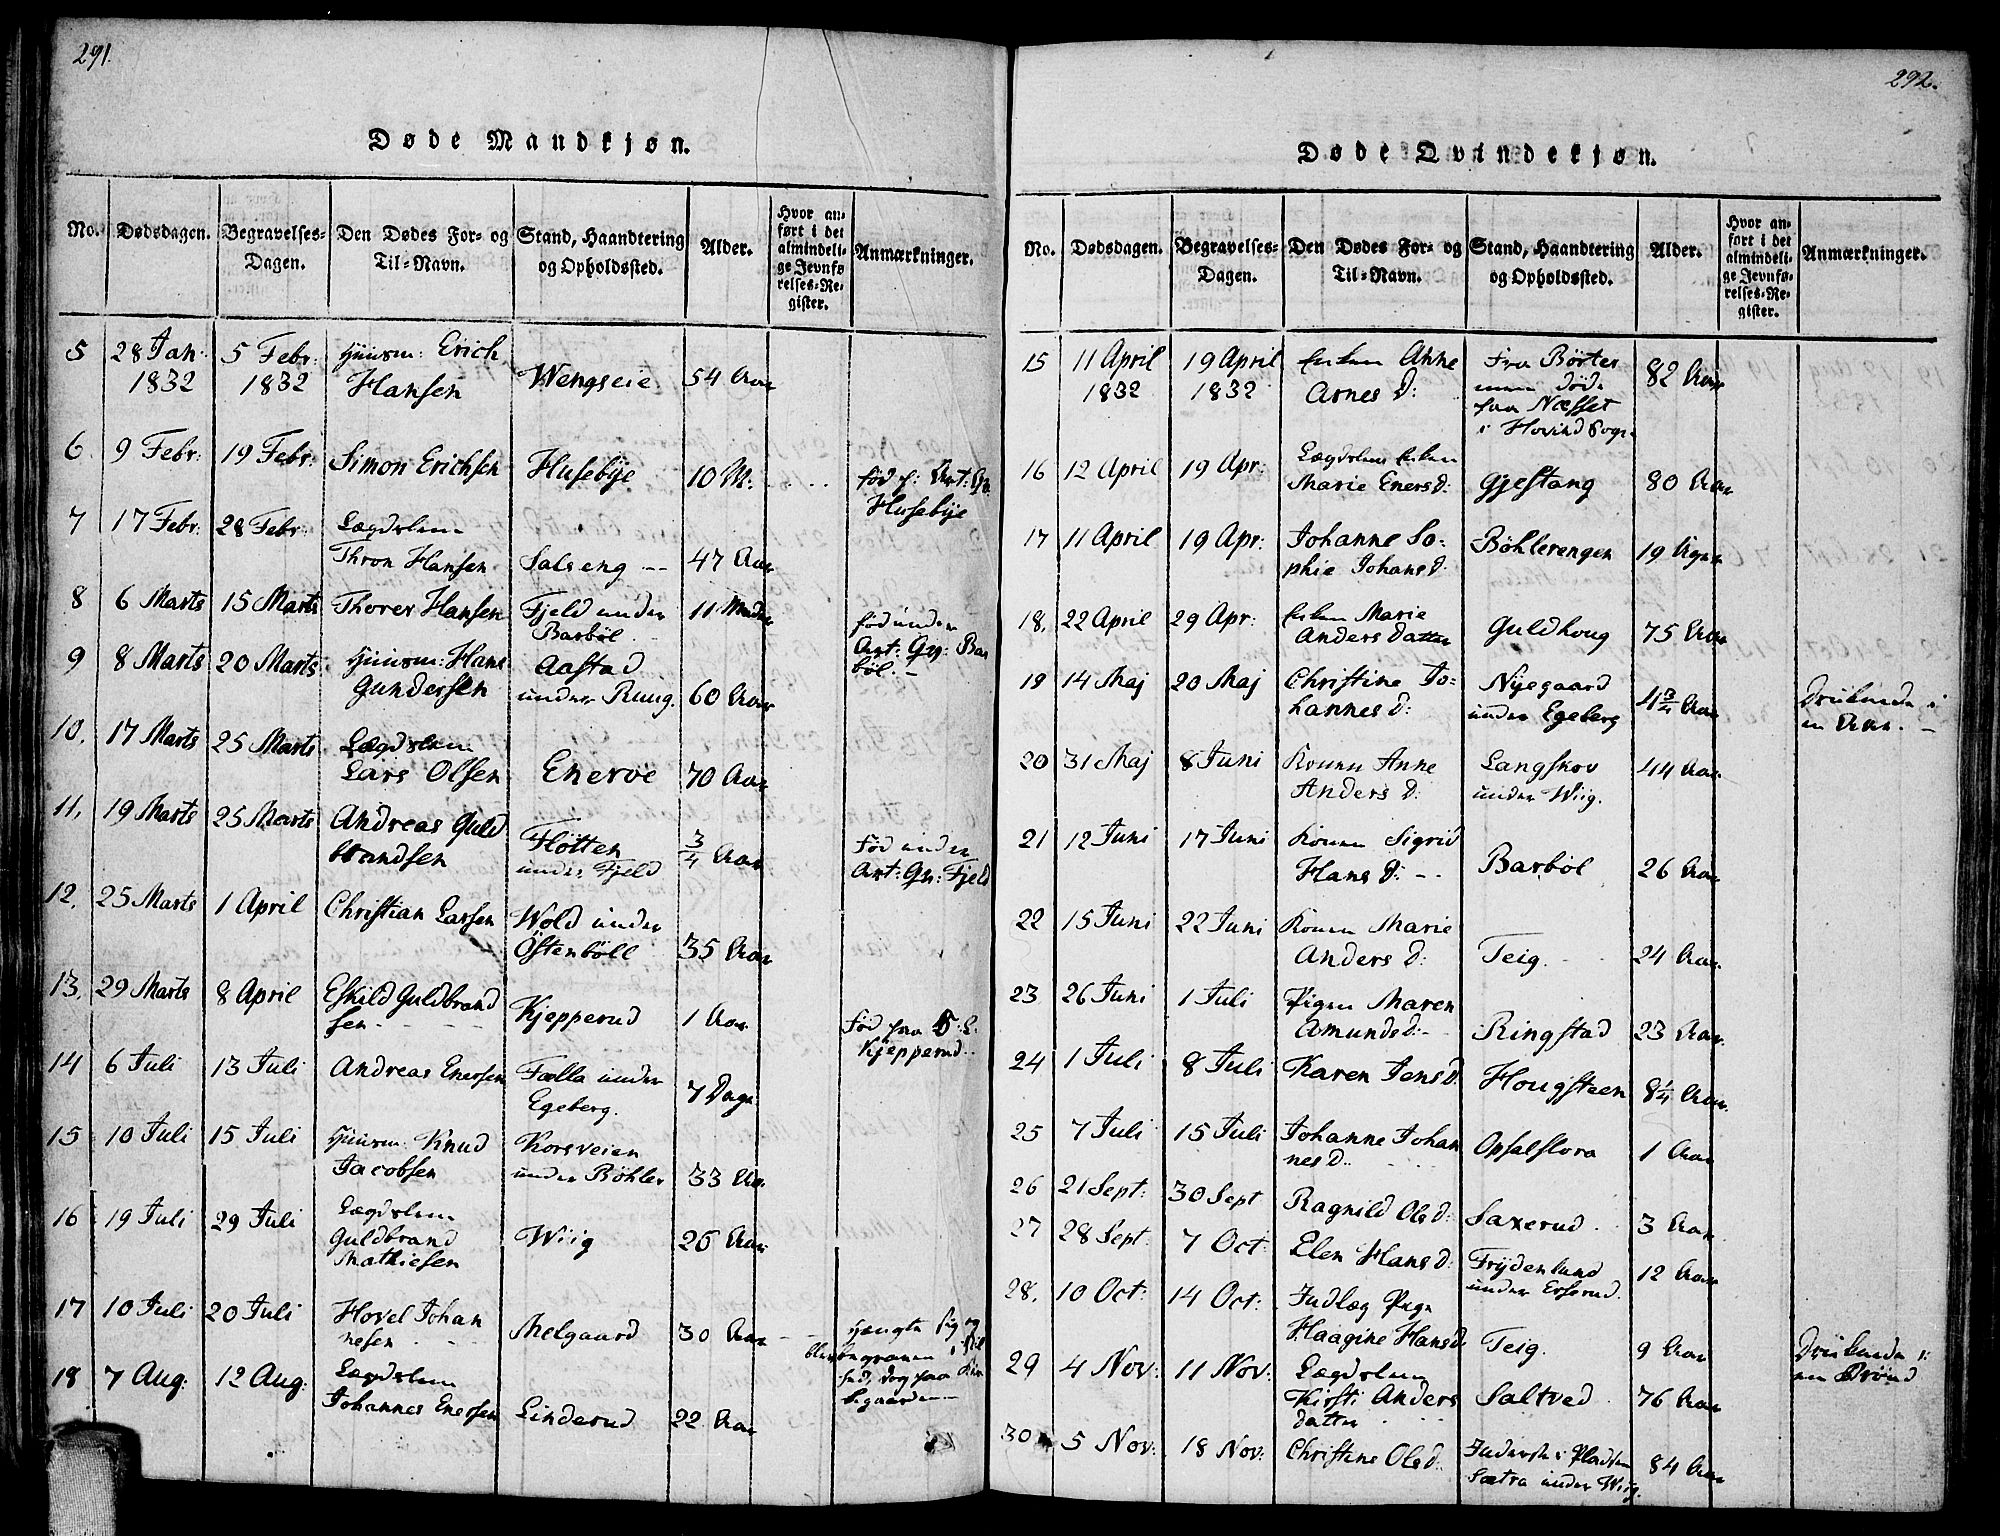 291.
Døde Mandkjøn.
No. Dødsdagen. Begravelses-Dagen. Den Dødes For- og Til-Navn. Stand, Haandtering og Opholdssted. Alder. Hvor anført i det almindelige Jevnførelses-Register. Anmærkninger.
5 28 Jan: 1832 5 Febr: 1832 Huusm: Erich Hansen Wengseie 54 Aar
6. 9 Febr: 19 Febr: Simon Erichsen Husebye 10 M: fød f: Art: Gr: Husebye
7 17 Febr: 28 Febr: Lægdslem Thron Hansen Salseng -- 47 Aar
8 6 Marts 15 Marts Thorer Hansen Fjeld under Barbøl 11 Maaner fød under Art: Gr: Barbøl. -
9 8 Marts 20 Marts Huusm: Hans Gundersen Aastad under Ruug. 60 Aar
10. 17 Marts 25 Marts Lægdslem Lars Olsen Enerve 70 Aar
11. 19 Marts 25 Marts Andreas Guldbrandsen Fløtten under Fjeld 3/4 Aar Fød under Art: Gr: Fjeld
12. 25 Marts 1 April Christian Larsen Wold under Østenbøll 35 Aar
13. 29 Marts 8 April Eskild Guldbrandsen - Kjepperud 1 Aar Fød paa S: E: Kjepperud.
14 6 Juli 13 Juli Andreas Enersen Fælla under Egeberg. 7 Dage
15 10 Juli 15 Juli Huusm: Knud Jacobsen Korsveien under Bøhler 33 Aar
16 19 Juli 29 Juli Lægdslem Guldbrand Mathiesen Wiig 26 Aar
17 10 Juli 20 Juli Hovel Johannesen - Melgaard 30 Aar hængte sig og blev begraven i Stilhed, dog paa Kirkegaarden
18 7 Aug: 12 Aug: Lægdslem Johannes Enersen Linderud 22 Aar
292.
Døde Qvindekjøn.
No. Dødsdagen. Begravelses-Dagen. Den Dødes For- og Til-Navn. Stand, Haandtering og Opholdssted. Alder. Hvor anført i det almindelige Jevnførelses-Register. Anmærkninger.
15 11 April 1832 19 April 1832 Enken Anne Arnes D: Fra Børter men døde paa Næsset i Hovind Sogn 82 Aar
16 12 April 19 Apr: Lægdslem Enken Marie Eners d: Gjestang 80 Aar
17 11 April 19 Apr: Johanne Sophie Johans d: Bøhlerengen 19 Uger
18. 22 April 29 Apr: Enken Marie Anders datter Guldhoug 75 Aar
19 14 Maj 20 Maj Christine Johannes d: Nyegaard under Egeberg 4 3/4 Aar Druknede i en Aae. -
20 31 Maj 8 Juni Konen Anne Anders d: Langskov under Wiig. 44 Aar
21 12 Juni 17 Juni Konen Sigrid Hans d: -- Barbøl 26 Aar
22 15 Juni 22 Juni Konen Marie Anders d: Teig. 24 Aar
23 26 Juni 1 Juli Pigen Maren Amunds d:- Ringstad 23 Aar
24 1 Juli 8 Juli Karen Jens d. Hougsteen 8 1/4 Aar
25 7 Juli 15 Juli Johanne Johannes d.. Opsalflora 1 Aar
26 21 Sept: 30 Sept Ragnild Ols d: Saxerud 3 Aar
27 28 Sept: 7 Oct: Elen Hans d: Frydenlund under Erserud. 12 Aar
28. 10 Oct: 14 Oct: Indlæg Pige Haagine Hans d. Teig. 9 Aar Druknede i en Brønd
29 4 Nov: 11 Nov: Lægdslem Kirsti Anders datter Saltved 76 Aar
30 5 Nov: 18 Nov: Christine Ols d. Inderste i Pladsen Sætra under Wiig. 84 Aar